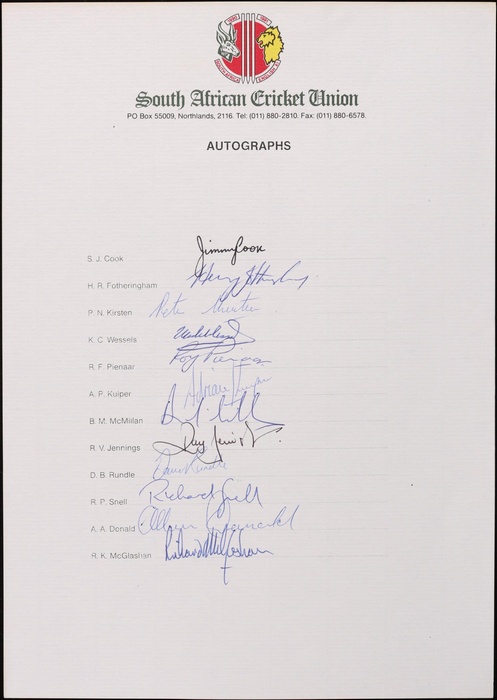 South African Cricket Union
PO Box 55009, Northlands, 2116. Tel: (011) 880-2810. Fax: (011) 880-6578.
AUTOGRAPHS
S. J. Cook Jimmy Cook
H. R. Fotheringham
P. N. Kirsten Peter Kirsten
K. C. Wessels
R. F. Pienaar Roy Pienaar
A. P. Kuiper Adrian Kuiper
B. M. McMillan
R. V. Jennings Ray Jennings
D. B. Rundle Dave Rundle
R. P. Snell Richard Snell
A. A. Donald
R. K. McGlashan Richard McGlashan